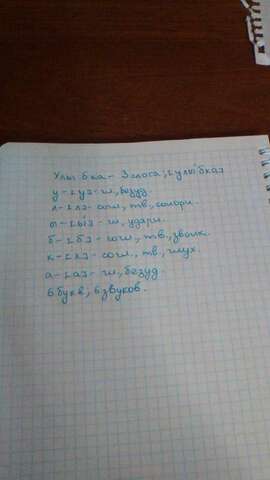 Улыбка - 3 слога; [улы́бка]
у - [у] - гл, безуд.
л - [л] - согл., тв., сонорн.
ы - [ы́] - гл., ударн.
б - [б] - согл., тв., звонк.
к - [к] - согл., тв., глух.
а - [а] - гл., безуд.
6 букв, 6 звуков.